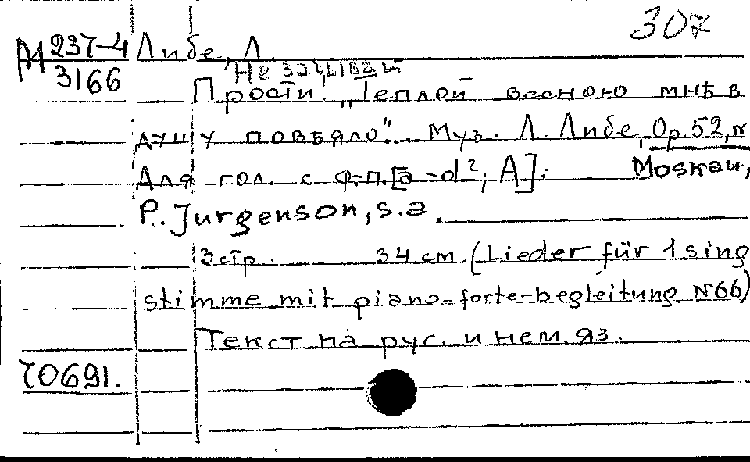 307
М 237-4 Либе, Л.
3166 Не забывай
Прости. „Теплой весною мне в
душу повеяло". Муз. Л. Либе, Op. 52, №
Для гол. с ф-п. [a-d², A]. Moskau,
P. Jurgenson, s.a.
3 стр. 34 см. (Lieder für 1 sing
stimme mit piano-forte-begleitung №66)
Текст на рус. и нем. яз.
70691.